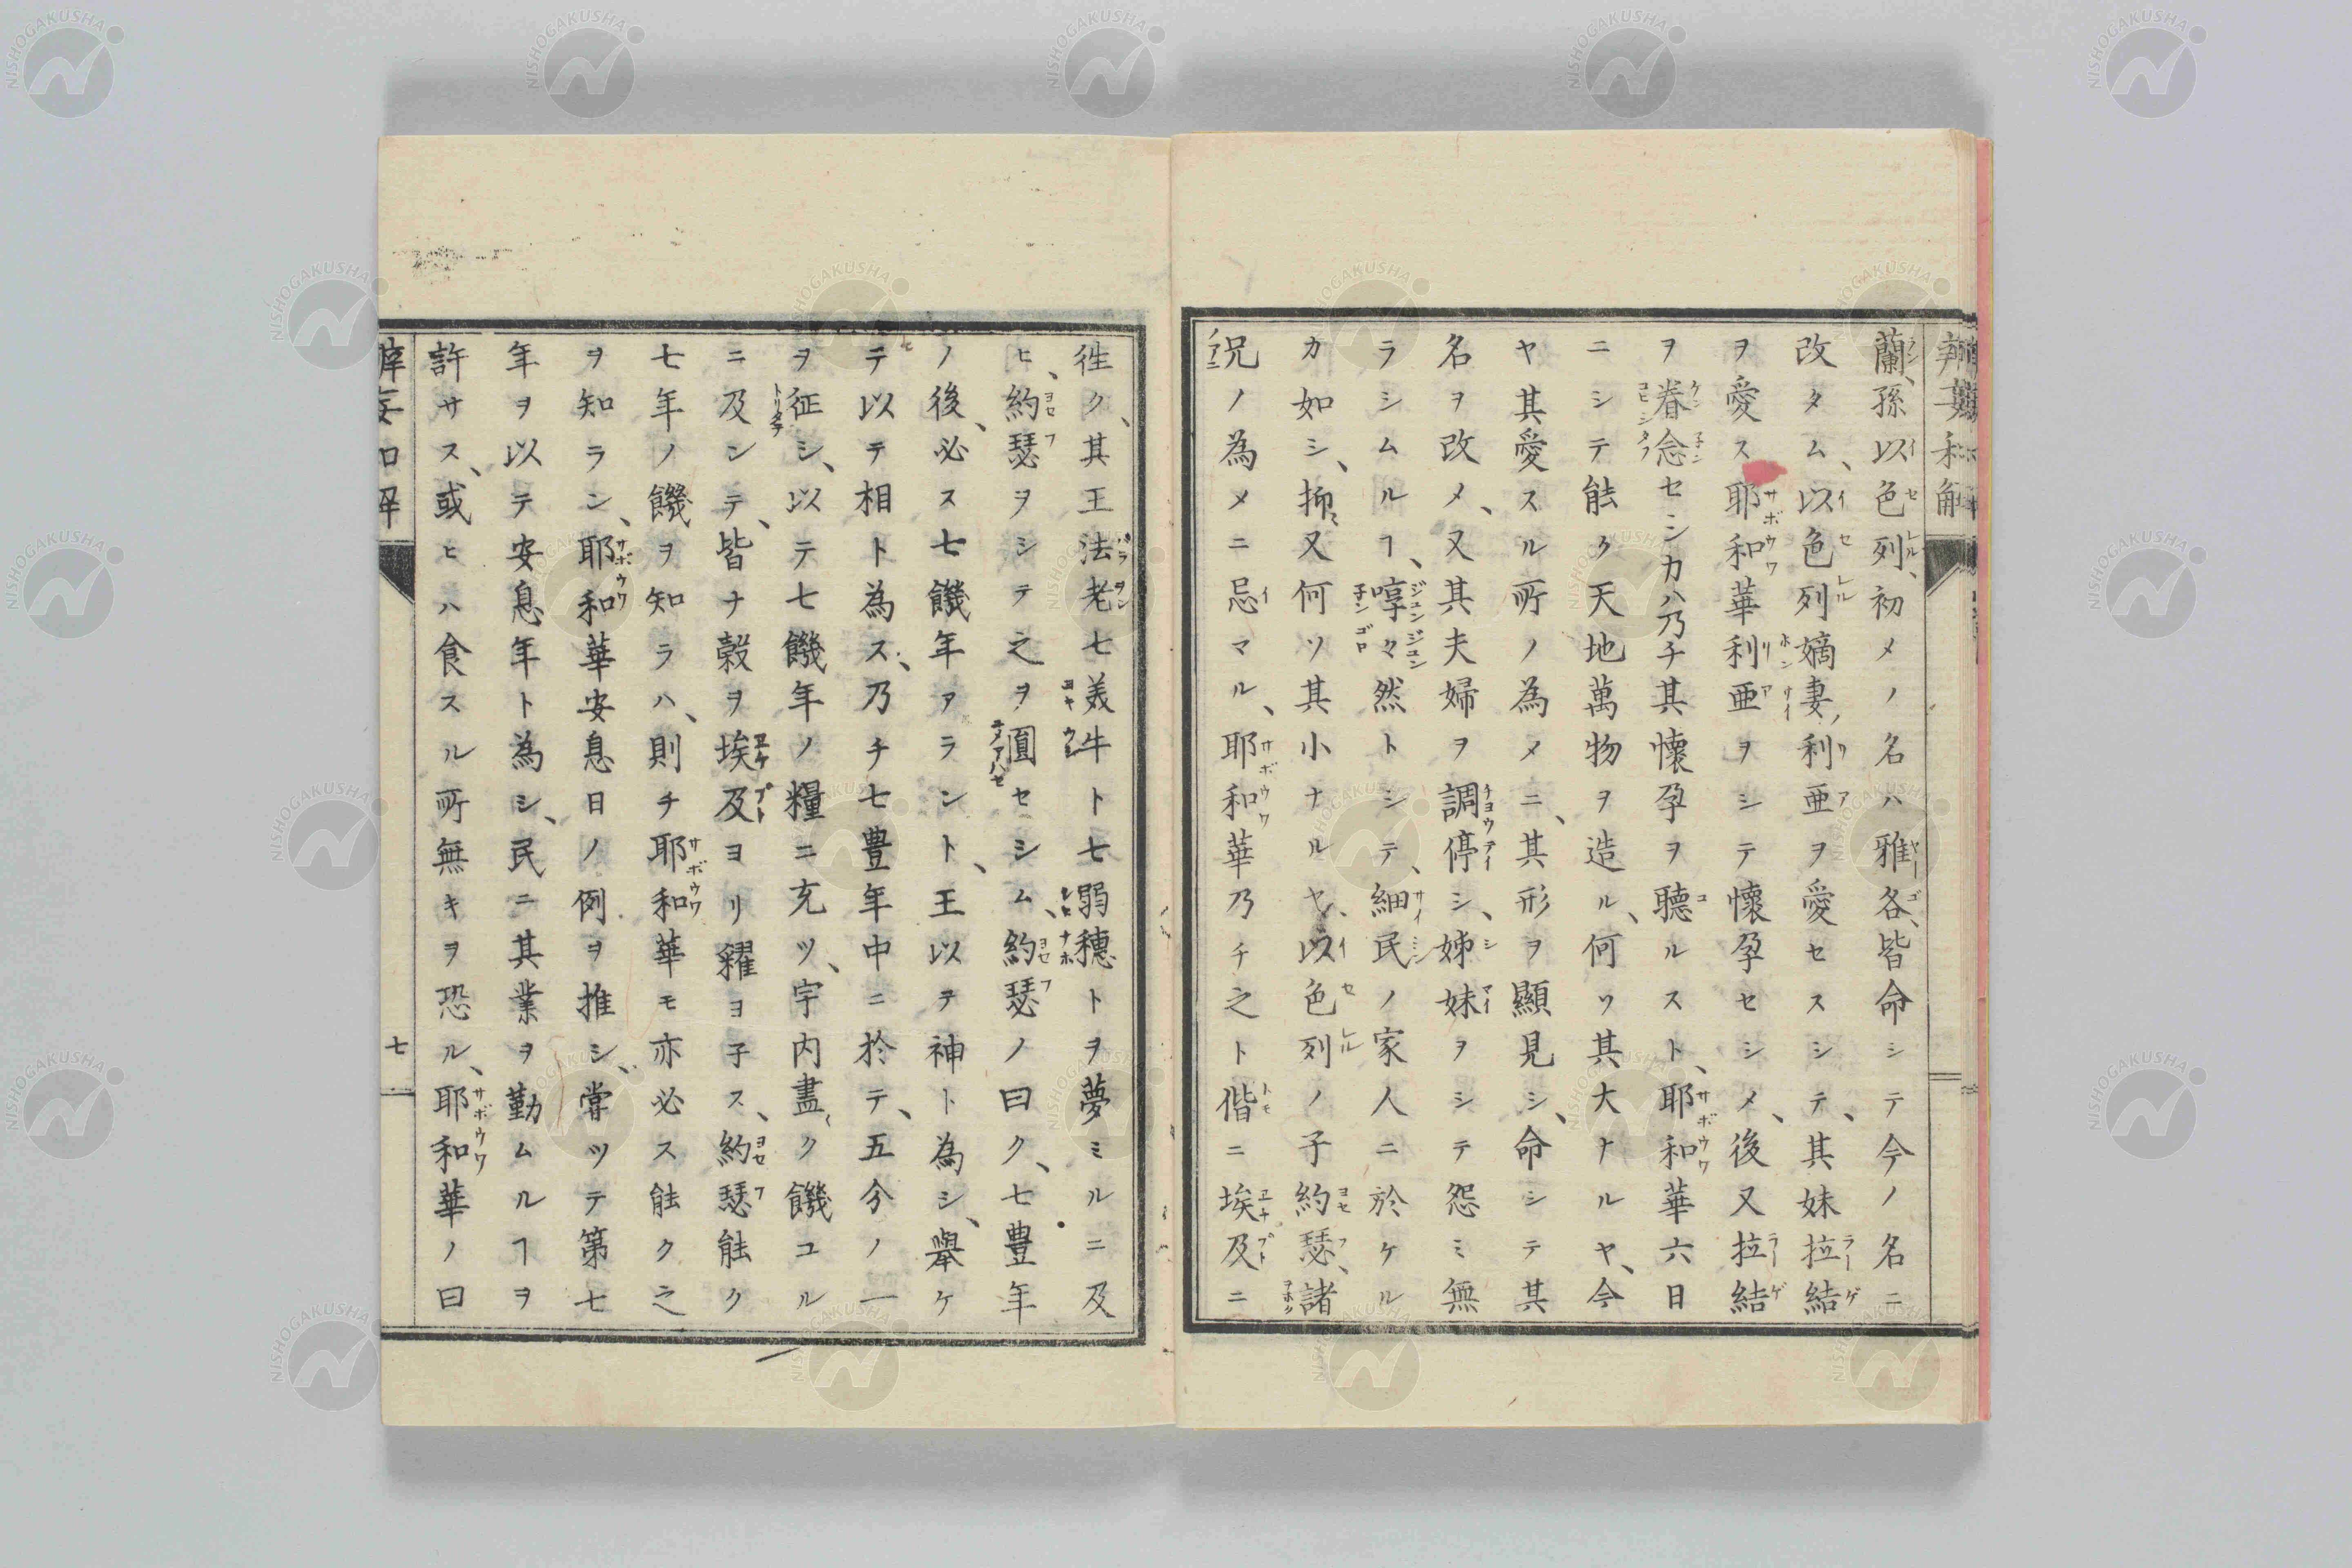 蘭、孫以色列、初メノ名ハ雅各、皆命シテ今ノ名ニ
改タム、以色列嫡妻利亜ヲ愛セスシテ、其妹拉結
ヲ愛ス耶和華利亜ヲシテ懐孕セシメ、後又拉結
ヲ眷念セシカハ乃チ其懐孕ヲ聴ルスト、耶和華六日
ニシテ能ク天地萬物ヲ造ル、何ソ其大ナルヤ、今
ヤ其愛スル所ノ為メニ、其形ヲ顯見シ、命シテ其
名ヲ改メ、又其夫婦ヲ調停シ、姊妹ヲシテ怨ミ無
ラシムルヿ、啍々然トシテ、細民ノ家人ニ於ケル
カ如シ、抑又何ソ其小ナルヤ、以色列ノ子約瑟、諸
兄ノ為メニ忌マル、耶和華乃チ之ト偕ニ埃及ニ
徃ク、其王法老七美牛ト七弱穗トヲ夢ミルニ及
ヒ、約瑟ヲシテ之ヲ圓セシム、約瑟ノ曰ク、七豊年
ノ後、必ス七饑年アラント、王以テ神ト為シ、舉ケ
テ以テ相ト為ス、乃チ七豊年中ニ於テ、五分ノ一
ヲ征シ、以テ七饑年ノ糧ニ充ツ、宇内盡ク饑ユル
ニ及ンテ、皆ナ穀ヲ埃及ヨリ糴ヨ子ス、約瑟能ク
七年ノ饑ヲ知ラハ、則チ耶和華モ亦必ス能ク之
ヲ知ラン、耶和華安息日ノ例ヲ推シ、甞ツテ第七
年ヲ以テ安息年ト為シ、民ニ其業ヲ勤ムルヿヲ
許サス、或ヒハ食スル所無キヲ恐ル、耶和華ノ曰
七